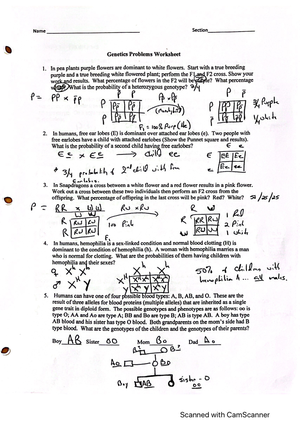 Name
Section
Genetics Problems Worksheet
1. In pea plants purple flowers are dominant to white flowers. Start with a true breeding
purple and a true breeding white flowered plant; perform the F1 and F2 cross. Show your
work and results. What percentage of flowers in the F2 will be purple? What percentage
What is the probability of a heterozygous genotype? 2/4
P = PP x pp
3/4 Purple
1/4 white
2. In humans, free ear lobes (E) is dominant over attached ear lobes (e). Two people with
free earlobes have a child with attached earlobes (Show the Punnett square and results).
What is the probability of a second child having free earlobes?
E e
Ee x Ee → child ee
* 3/4 probability of 2nd child with free
Earlobes.
3. In Snapdragons a cross between a white flower and a red flower results in a pink flower.
Work out a cross between these two individuals then perform an F2 cross from the
offspring. What percentage of offspring in the last cross will be pink? Red? White?
P = RR x WW
RW x RW
1 Red
2 Pink
1 white
4. In humans, hemophilia is a sex-linked condition and normal blood clotting (H) is
dominant to the condition of hemophilia (h). A woman with hemophilia marries a man
who is normal for clotting. What are the probabilities of them having children with
hemophilia and their sexes?
50% of children with
hemophilia
5. Humans can have one of four possible blood types: A, B, AB, and O. These are the
result of three alleles for blood proteins (multiple alleles) that are inherited as a single
gene trait in diploid form. The possible genotypes and phenotypes are as follows: oo is
type O; AA and Ao are type A; BB and Bo are type B; AB is type AB. A boy has type
AB blood and his sister has type O blood. Both grandparents on the mom's side had B
type blood. What are the genotypes of the children and the genotypes of their parents?
Boy AB Sister oo Mom Bo Dad Ao
Boy AB
Scanned with CamScanner